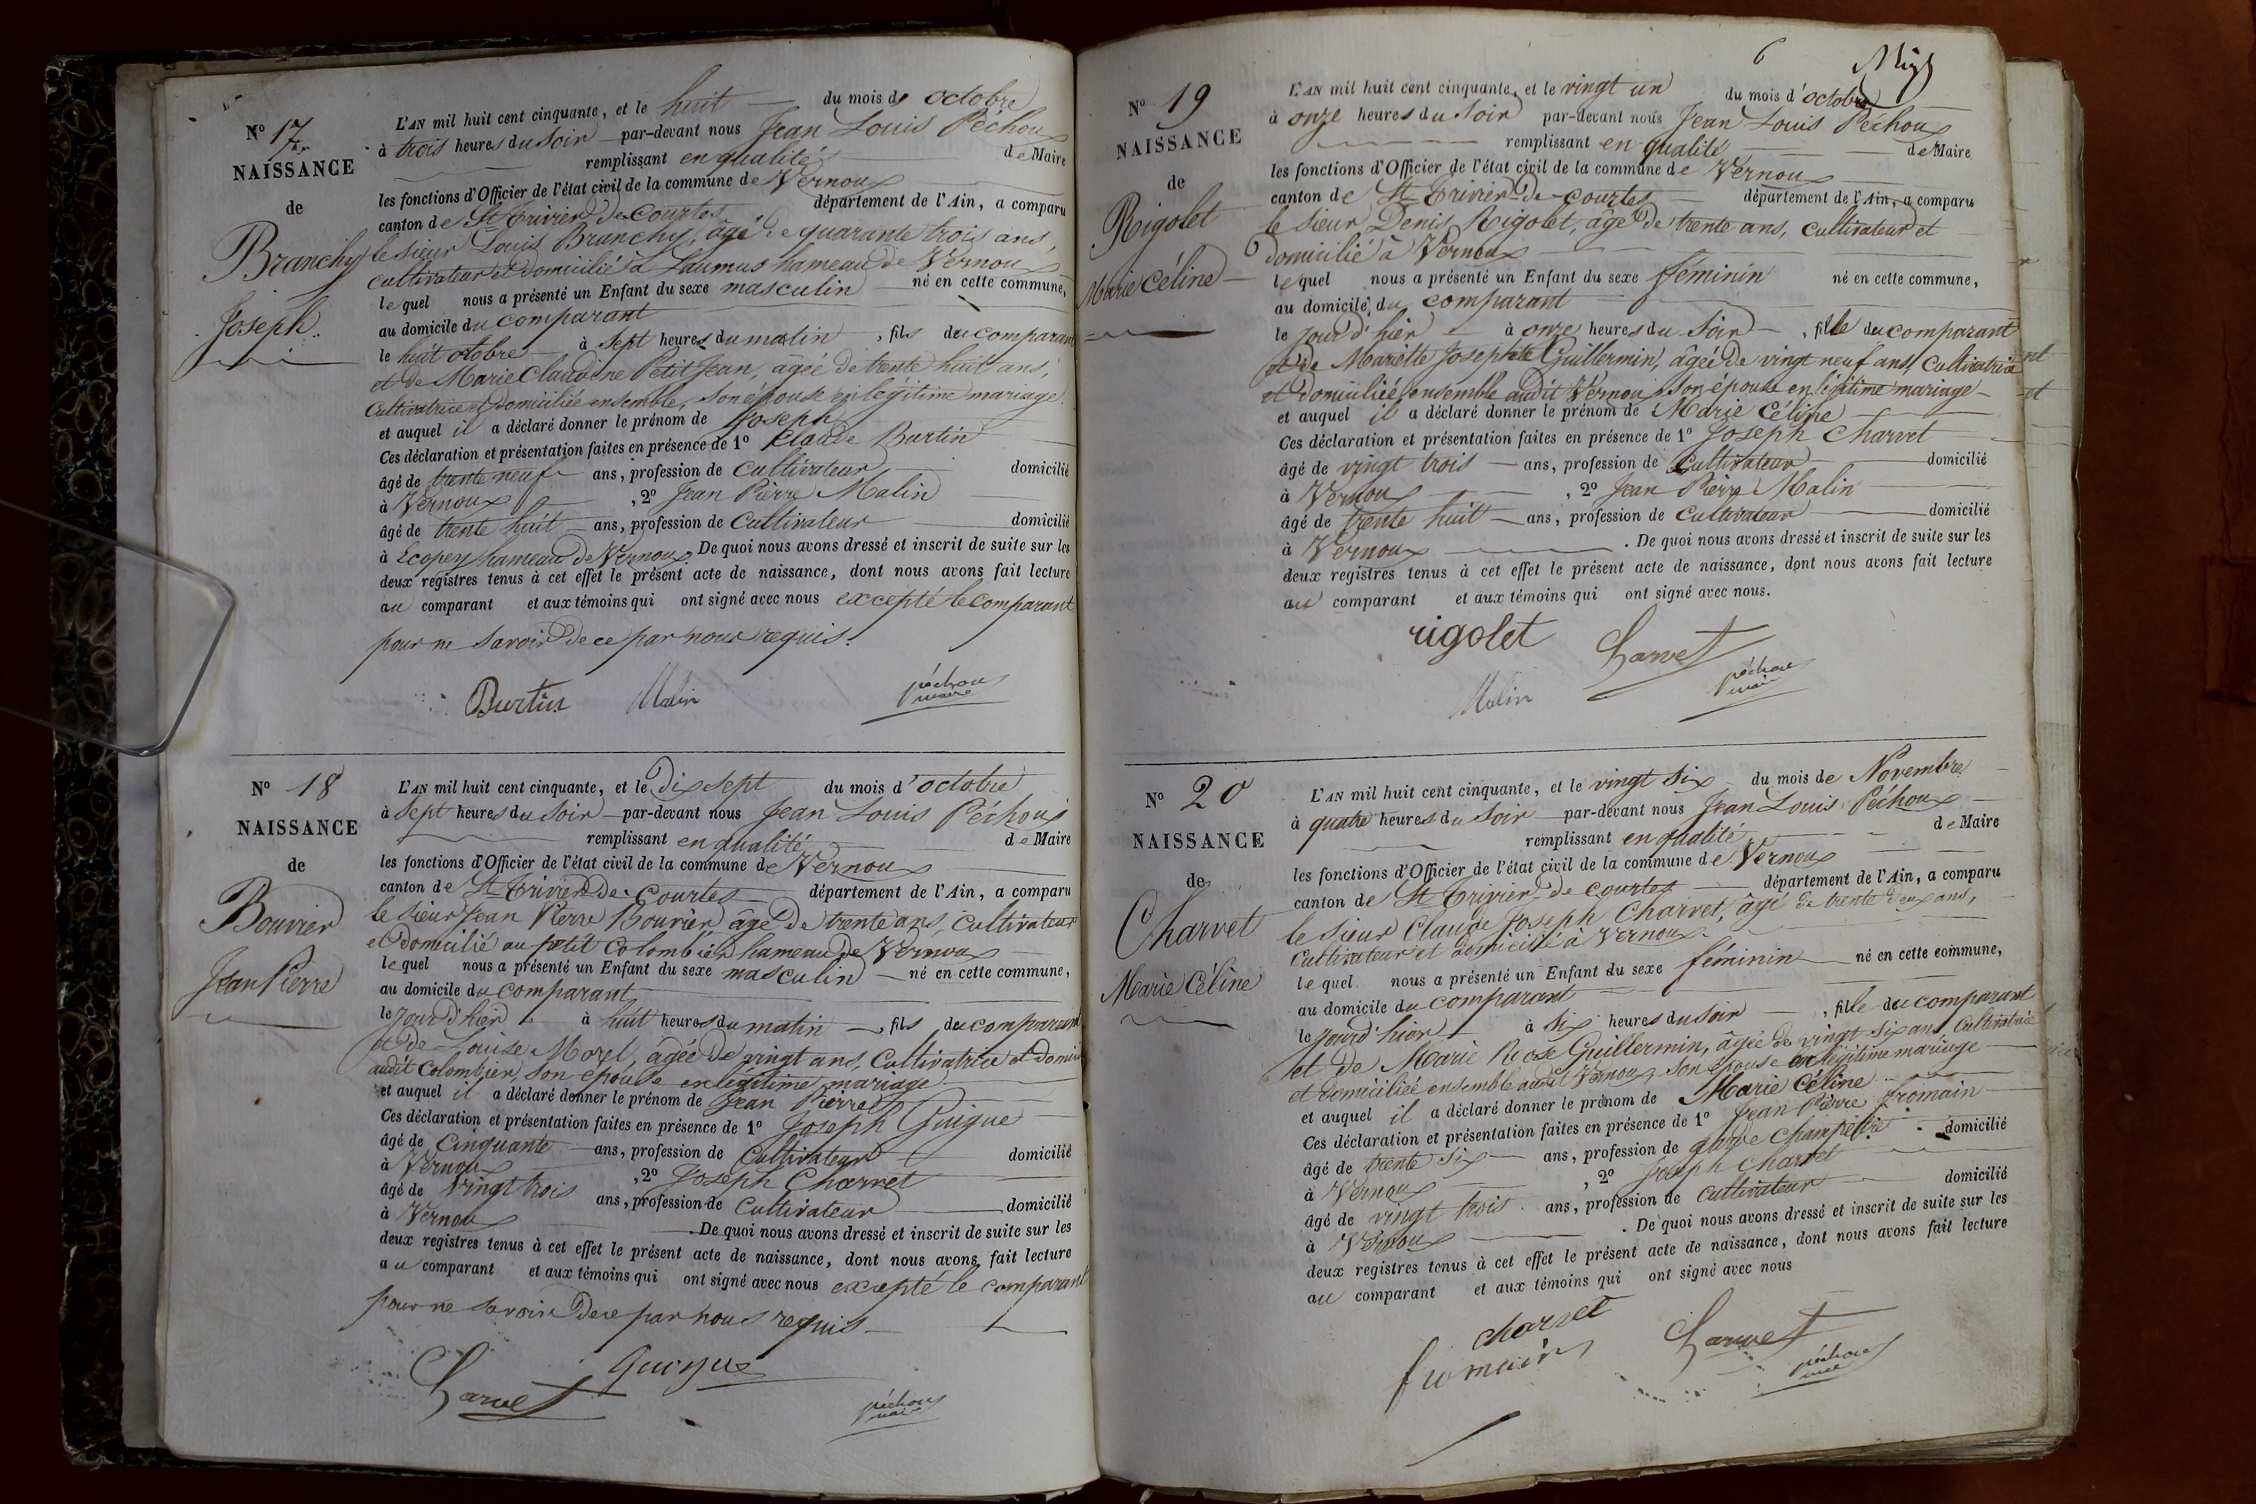 N° 17
NAISSANCE
de
Branchy
Joseph
L'AN mil huit cent cinquante, et le huit du mois de octobre
à trois heures du soir par-devant nous Jean Louis Péchoux
remplissant en qualité de Maire
les fonctions d'Officier de l'état civil de la commune de Vernoux
canton de St Trivier de courtes département de l'Ain, a comparu
le sieur Louis Branchy, âgé de quarante trois ans,
cultivateur et domicilié à Laumus hameau de Vernoux
lequel nous a présenté un Enfant du sexe masculin né en cette commune,
au domicile du comparant
le huit otobre à sept heures du matin, fils du comparant
et de Marie Claudine Petit Jean, âgée de trente huit ans,
cultivatrice et domiciliée ensemble, son épouse en légitime mariage
et auquel il a déclaré donner le prénom de Joseph
Ces déclaration et présentation faites en présence de 1° Claude Burtin
âgé de trente neuf ans, profession de cultivateur domicilié
à Vernoux, 2° Jean Pierre Malin
âgé de trente huit ans, profession de cultivateur domicilié
à Ecopey hameau de Vernoux. De quoi nous avons dressé et inscrit de suite sur les
deux registres tenus à cet effet le présent acte de naissance, dont nous avons fait lecture
au comparant et aux témoins qui ont signé avec nous excepté le comparant
pour ne savoir de ce par nous requis.
Burtin Malin péchoux maire
N° 18
NAISSANCE
de
Bouvier
Jean Pierre
L'AN mil huit cent cinquante, et le dix sept du mois d'octobre
à sept heures du soir par-devant nous Jean Louis Péchoux
remplissant en qualité de Maire
les fonctions d'Officier de l'état civil de la commune de Vernoux
canton de St Trivier de courtes département de l'Ain, a comparu
le sieur Jean Pierre Bouvier âgé de trente ans, cultivateur
et domicilié au petit Colombier hameau de Vernoux
lequel nous a présenté un Enfant du sexe masculin né en cette commune,
au domicile du comparant
le jour d'hier à huit heures du matin, fils du comparant
et de Louise Morel, âgée de vingt ans, cultivatrice et domici
audit Colombier, son épouse en légitime mariage
et auquel il a déclaré donner le prénom de Jean Pierre
Ces déclaration et présentation faites en présence de 1° Joseph Guigue
âgé de cinquante ans, profession de cultivateur domicilié
à Vernoux, 2° Joseph Charvet
âgé de vingt trois ans, profession de cultivateur domicilié
à Vernoux. De quoi nous avons dressé et inscrit de suite sur les
deux registres tenus à cet effet le présent acte de naissance, dont nous avons fait lecture
au comparant et aux témoins qui ont signé avec nous excepté le comparant
pour ne savoir de ce par nous requis
Charvet Guigue péchoux maire
6
N° 19
NAISSANCE
de
Rigolet
Marie Céline
L'AN mil huit cent cinquante, et le vingt un du mois d'octobre
à onze heures du soir par-devant nous Jean Louis Péchoux
remplissant en qualité de Maire
les fonctions d'Officier de l'état civil de la commune de Vernoux
canton de St Trivier de courtes département de l'Ain, a comparu
le sieur Denis Rigolet, âgé de trente ans, cultivateur et
domicilié à Vernoux
lequel nous a présenté un Enfant du sexe féminin né en cette commune,
au domicile du comparant
le jour d'hier à onze heures du soir, fille du comparant
et de Mariette Josephte Guillermin, âgée de vingt neuf ans, cultivatrice
et domiciliée ensemble audit Vernoux son épouse en légitime mariage
et auquel il a déclaré donner le prénom de Marie Céline
Ces déclaration et présentation faites en présence de 1° Joseph Charvet
âgé de vingt trois ans, profession de cultivateur domicilié
à Vernoux, 2° Jean Pierre Malin
âgé de trente huit ans, profession de cultivateur domicilié
à Vernoux. De quoi nous avons dressé et inscrit de suite sur les
deux registres tenus à cet effet le présent acte de naissance, dont nous avons fait lecture
au comparant et aux témoins qui ont signé avec nous.
rigolet Charvet
Malin péchoux maire
N° 20
NAISSANCE
de
Charvet
Marie Céline
L'AN mil huit cent cinquante, et le vingt six du mois de Novembre
à quatre heures du soir par-devant nous Jean Louis Péchoux
remplissant en qualité de Maire
les fonctions d'Officier de l'état civil de la commune de Vernoux
canton de St Trivier de courtes département de l'Ain, a comparu
le sieur Claude Joseph Charvet, âgé de trente deux ans,
cultivateur et domicilié à Vernoux
lequel nous a présenté un Enfant du sexe féminin né en cette commune,
au domicile du comparant
le jourd'hier à six heures du soir, fille du comparant
et de Marie Rose Guillermin, âgée de vingt six ans, cultivatrice
et domiciliée ensemble audit Vernoux, son épouse en légitime mariage
et auquel il a déclaré donner le prénom de Marie Céline
Ces déclaration et présentation faites en présence de 1° Jean Pierre fromain
âgé de trente six ans, profession de garde champêtre domicilié
à Vernoux, 2° Joseph Charvet
âgé de vingt trois ans, profession de cultivateur domicilié
à Vernoux. De quoi nous avons dressé et inscrit de suite sur les
deux registres tenus à cet effet le présent acte de naissance, dont nous avons fait lecture
au comparant et aux témoins qui ont signé avec nous
charvet Charvet
fromain péchoux